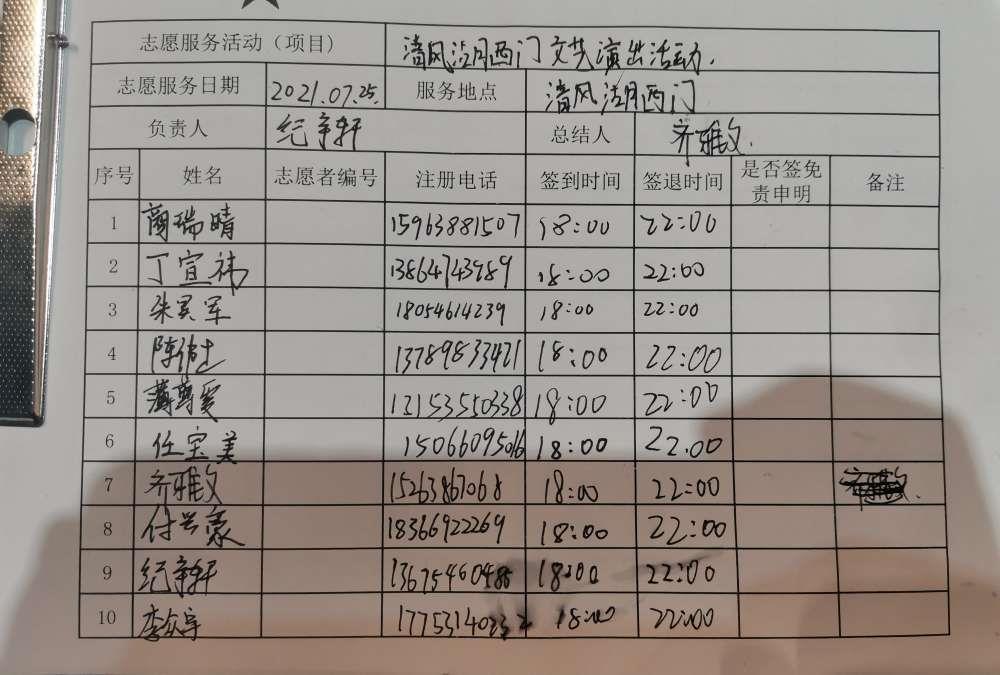 志愿服务活动（项目） 清风湖西门文艺演出活动.
志愿服务日期 2021.07.25. 服务地点 清风湖西门
负责人 纪宇轩 总结人 齐雅文.
序号 姓名 志愿者编号 注册电话 签到时间 签退时间 是否签免责申明 备注
1 颜瑞晴 15963881507 18:00 22:00
2 丁宣祎 13864743989 18:00 22:00
3 军 18054614239 18:00 22:00
4 陈 13789833421 18:00 22:00
5 13153550338 18:00 22:00
6 任宝美 15066095016 18:00 22.00
7 齐雅文 15263867068 18:00 22:00
8 付兴豪 18366922269 18:00 22:00
9 纪宇轩 18:00 22:00
10 李众宇 18:00 22:00